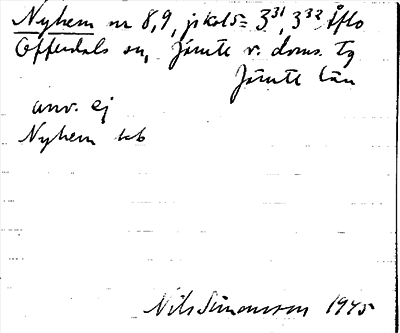 Nyhem nr 8,9, jkol5= 3³¹, 3³² Åflo
Offerdals sn, Jämte v. doms. tg
Jämte län
anv. ej
Nyhem kb
Nils Simonsson 1945